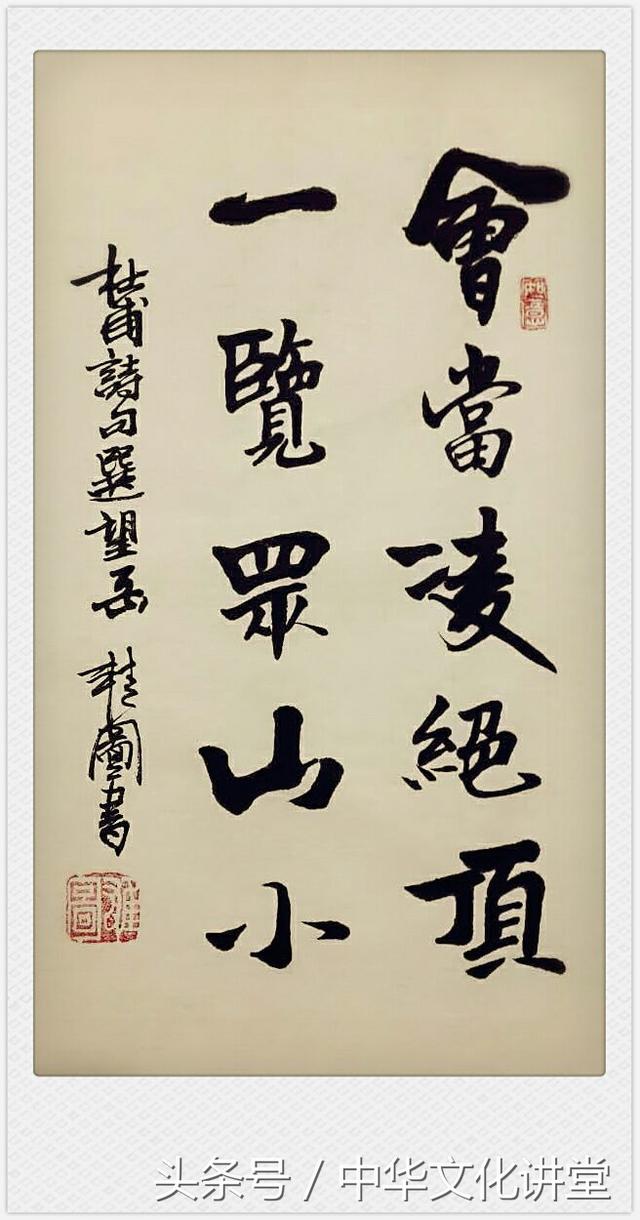 會當凌絕頂
一覽眾山小
杜甫詩句選望岳 桂圖書
如意
头条号 / 中华文化讲堂